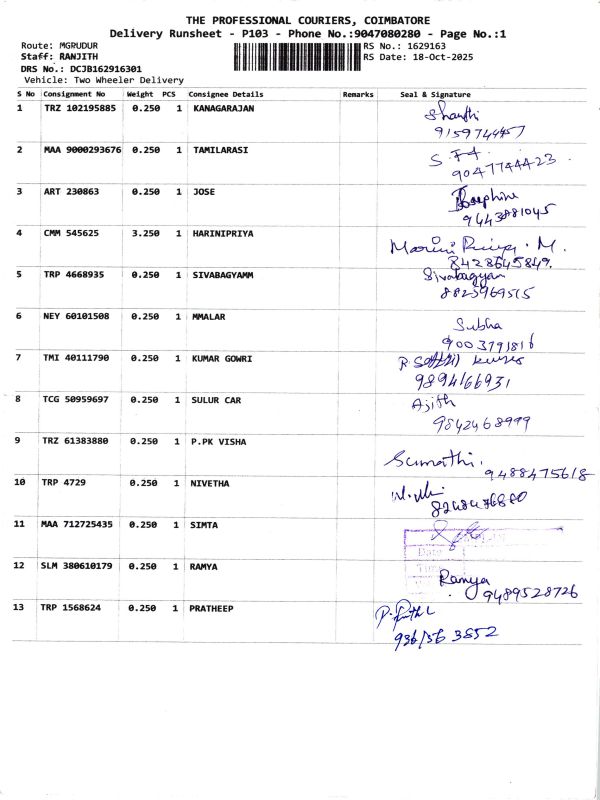 THE PROFESSIONAL COURIERS, COIMBATORE
Delivery Runsheet - P103 - Phone No.:9047080280 - Page No.:1
Route: MGRUDUR RS No.: 1629163
Staff: RANJITH RS Date: 18-Oct-2025
DRS No.: DCJB162916301
Vehicle: Two Wheeler Delivery
S No Consignment No Weight PCS Consignee Details Remarks Seal & Signature
1 TRZ 102195885 0.250 1 KANAGARAJAN Shanthi
2 MAA 9000293676 0.250 1 TAMILARASI
9047744423
3 ART 230863 0.250 1 JOSE Josephine
9443881045
4 CMM 545625 3.250 1 HARINIPRIYA
8428645849
5 TRP 4668935 0.250 1 SIVABAGYAMM Sivabagyam
8825969515
6 NEY 60101508 0.250 1 MMALAR Subha
9003791816
7 TMI 40111790 0.250 1 KUMAR GOWRI
9894166931
8 TCG 50959697 0.250 1 SULUR CAR Ajith
9842468999
9 TRZ 61383880 0.250 1 P.PK VISHA Sumathi.
9488475618
10 TRP 4729 0.250 1 NIVETHA
11 MAA 712725435 0.250 1 SIMTA
Date
12 SLM 380610179 0.250 1 RAMYA Ramya
9489528726
13 TRP 1568624 0.250 1 PRATHEEP